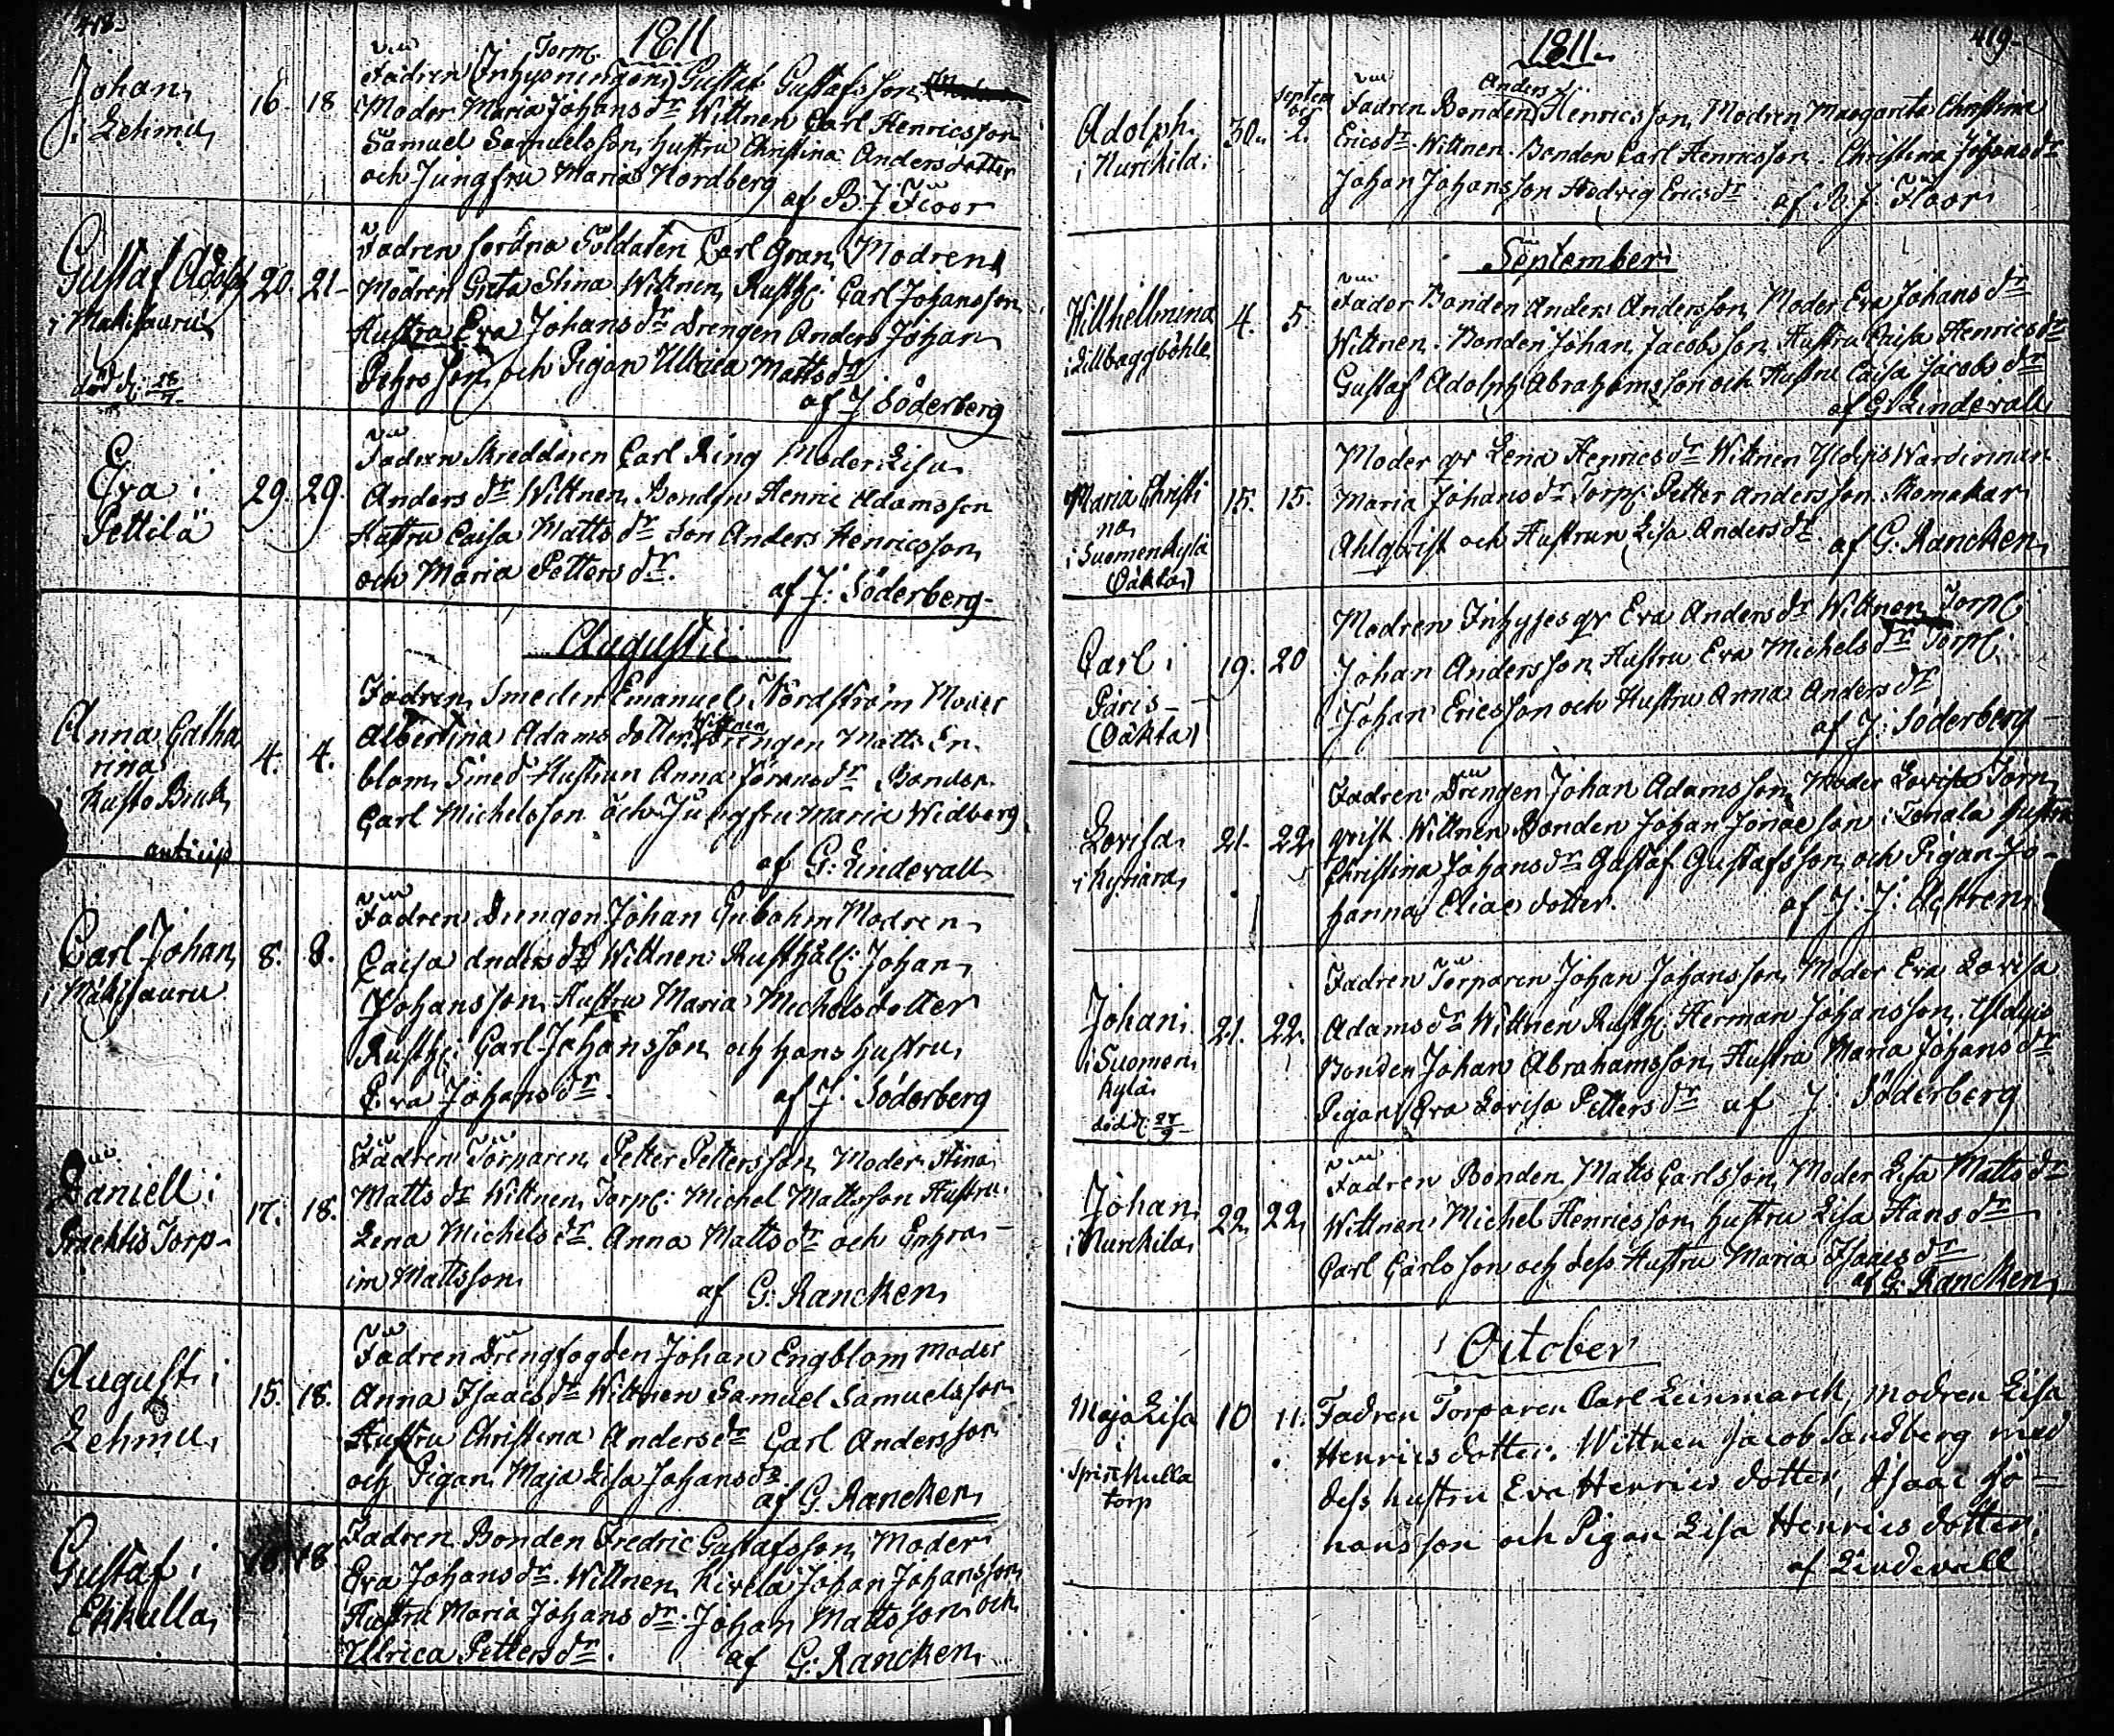 418.
1811
Johan
i Lehmu
16. 18
Torp.
Fadren Inhysningen Gustaf Gustafsson
Moder Maria Johans dr Wittnen Carl Henricsson
Samuel Samuelsson, hustru Christina Andersdotter
och Jungfru Maria Nordberg
af B. J. Floor
Gustaf Adolph
i Mäkisauru
död d. 28/7
20. 21
Fadren fordna Soldaten Carl Gran, Modren
Modren Greta Stina Wittnen, Rusth: Carl Johansson
Hustru Eva Johans dr Drengen Anders Johan
Pehrsson och Pigan Ulrica Matts dr
af J Söderberg
Eva i
Pettilä
29. 29.
Fadren Skreddaren Carl Ring Moder Lisa
Anders dr Wittnen, Bonden Henric Adamsson
Hustru Caisa Matts dr Son Anders Henricsson
och Maria Petters dr.
af J: Söderberg
Augusti
Anna Catha
rina
i Kusto Bruk
anticip
4. 4.
Fadren Smeden Emanuel Nordström Moder
Albertina Adams dotter Wittnen Drengen Matts En
blom, Smed Hustrun Anna Görans dr Bonden
Carl Michelsson och Jungfru Maria Widberg
af G: Lindevall
Carl Johan
i Mäkisauru
8. 8.
Fadren Drengen Johan Modren
Caisa Anders dr Wittnen Rusthåll: Johan
Johansson Hustru Maria Michelsdotter
Rusth: Carl Johansson och hans hustru
Eva Johans dr.
af J: Söderberg
Daniell i
Torp
17. 18.
Fadren Torparen Petter Pettersson Moder Stina
Matts dr Wittnen, Torp: Michel Mattsson Hustru
Lena Michels dr. Anna Matts dr och Ephra-
im Mattsson
af G: Rancken
August i
Lehmu
15. 18.
Fadren Drengfogden Johan Engblom Moder
Anna Isaacs dr Wittnen Samuel Samuelsson
Hustru Christina Anders dr Carl Andersson
och Pigan Maja Lisa Johans dr
af G. Rancken
Gustaf i
Ekkulla
18.
Fadren Bonden Fredric Gustafsson Moder
Eva Johans dr. Wittnen, Johan Johansson
Hustru Maria Johans dr. Johan Mattsson och
Ulrica Petters dr.
af G: Rancken
419
1811
Adolph
i Nurkkila
30. Septem
br 2.
Anders
Fadren Bonden Henricsson, Modren Margareta Christina
Erics dr. Wittnen. Bonden Carl Henricsson. Christina Johans dr
Johan Johansson Hedvig Erics dr
af B. J. Floor
September
Willhellmina
i Lillbaggböhle
4. 5.
Fader Bonden Anders Andersson, Moder Eva Johans dr
Wittnen. Bonden Johan Jacobsson Hustru Caisa Henrics dr
Gustaf Adolph Abrahamsson och Hustru Caisa Jacobs dr
af G Lindevall
Maria Christi
na
i Suomenkylä
(Oäkta)
15. 15.
Moder qv Lena Henrics dr Wittnen
Maria Johans dr Torp: Petter Andersson. Skomakar
Ahlqvist och Hustrun Lisa Anders dr
af G. Rancken
Carl i
Paris
(Oäkta)
19. 20
Modren Inhyses qv Eva Anders dr Wittnen Torp:
Johan Andersson, Hustru Eva Michels dr Torp:
Johan Ericsson och Hustru Anna Anders dr
af J: Söderberg
Lovisa
i
21. 22
Fadren Drengen Johan Adamsson, Moder Lovisa Törn
qvist. Wittnen Bonden Johan Jonaeson i Tonala hustru
Christina Johans dr Gustaf Gustafsson, och Pigan Jo-
hanna Eliae dotter.
af J: J:
Johan
i Suomen
kylä
död d: 27/9
21. 22.
Fadren Torparen Johan Johansson, Moder Eva Lovisa
Adams dr Wittnen Rusth: Herman Johansson,
Bonden Johan Abrahamsson, Hustru Maria Johans dr
Pigan Eva Lovisa Petters dr af J: Söderberg
Johan
i Nurkkila
22. 22.
Fadren Bonden Matts Carlsson, Moder Lisa Matts dr
Wittnen Michel Henricsson, hustru Lisa Hans dr
Carl Carlsson och dess Hustru Maria Isaacs dr
af G. Rancken
October
Maja Lisa
i
Spirikulla
torp
10 11.
Fadren Torparen Carl Leinmarck, modren Lisa
Henricsdotter. Wittnen Jacob Sandberg med
dess hustru Eva Henrics dotter, Isaac Jo=
hansson och Pigan Lisa Henrics dotter.
af Lindevall